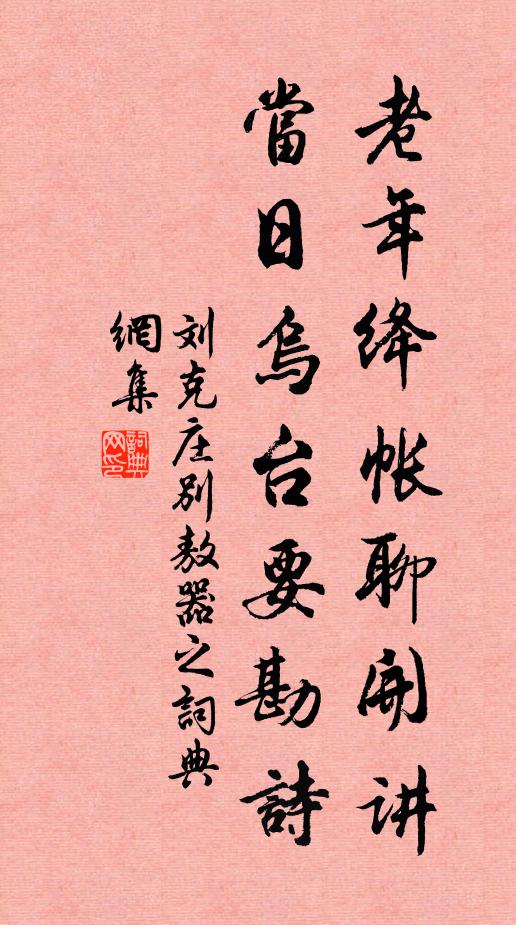 老年绛帐聊开讲
當日烏台要勘詩
刘克庄别敖器之詞典
網集
詞典
网印